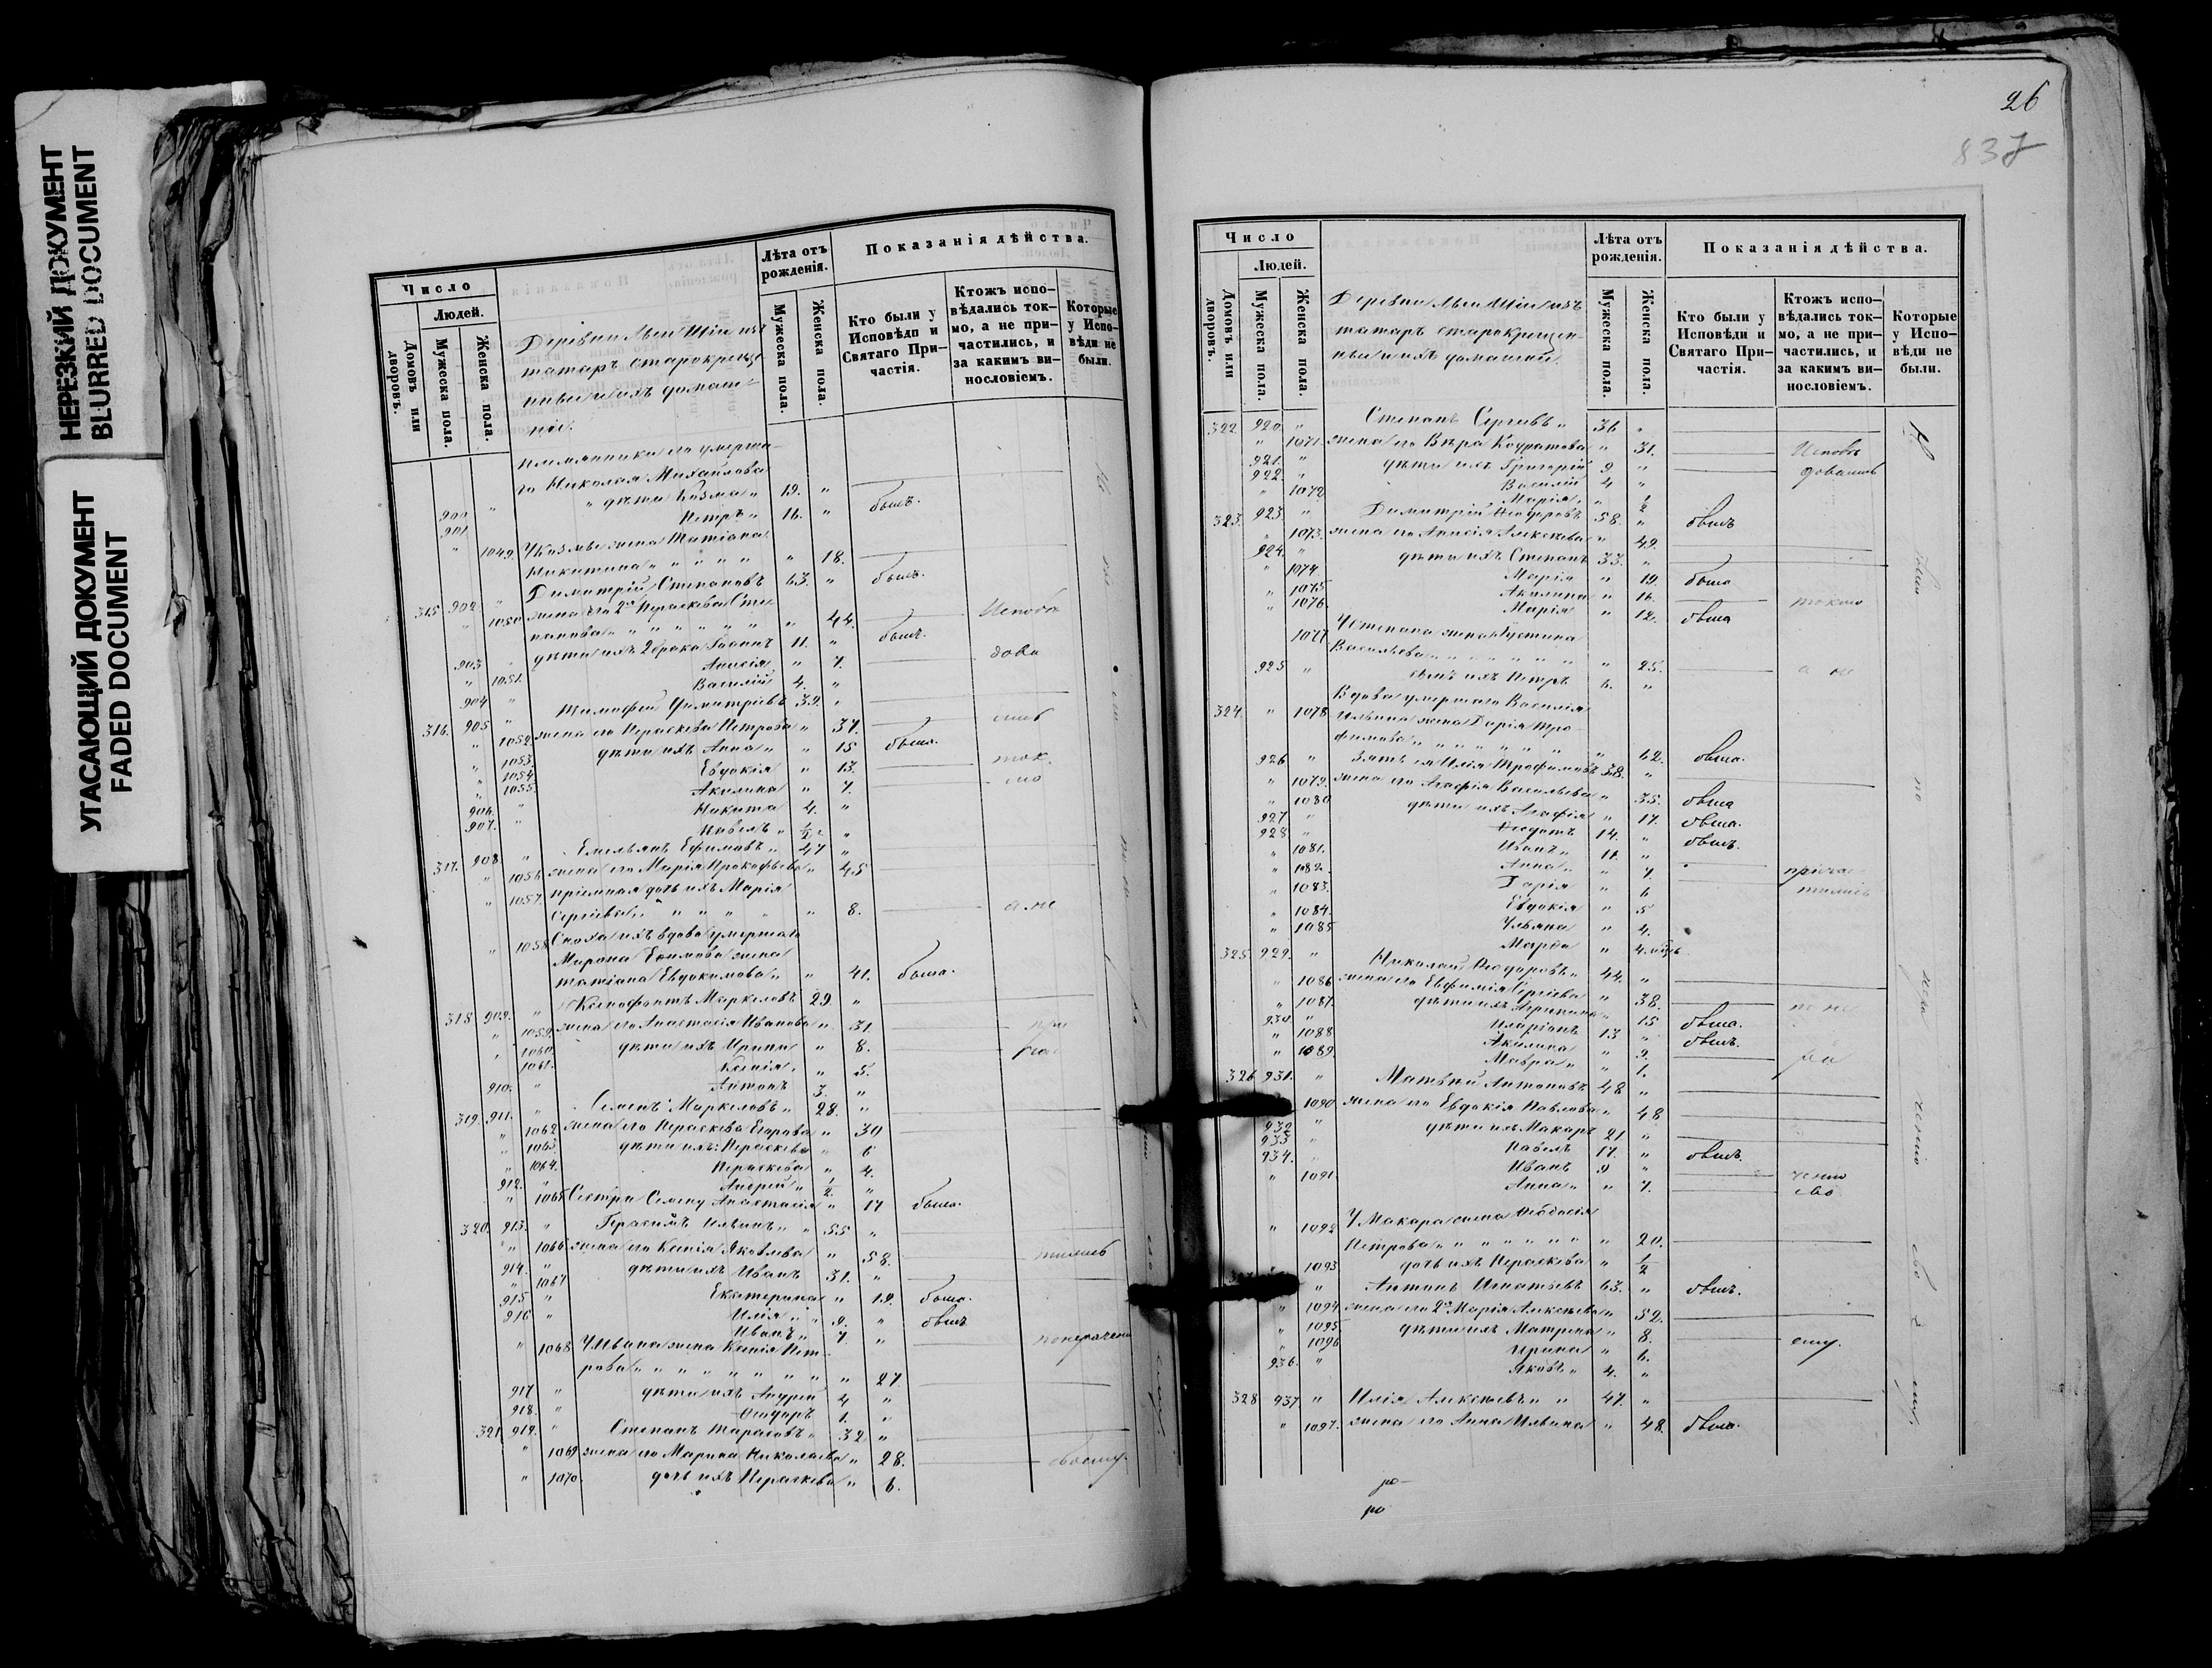 НЕРЕЗКИЙ ДОКУМЕНТ
BLURRED DOCUMENT
УГАСАЮЩИЙ ДОКУМЕНТ
FADED DOCUMENT
Число
Людей.
Домовъ или дворовъ.
Мужеска пола.
Женска пола.
татаръ старокреще
Лѣта отъ рожденія.
Мужеска пола.
Женска пола.
Показанія дѣйства.
Кто были у Исповѣди и Святаго При-
частія.
Ктожъ испо-
вѣдались ток-
мо, а не при-
частились, и
за какимъ ви-
нословіемъ.
Которые
у Испо-
вѣди не
были.
племянники его умерша-
го Николая Михайлова
900 " дѣти Козма " 19. "
901. Петръ " 16. " былъ.
" 1049. У Козмы жена Татіана
Никитина " " " " " 18.
315 902. " Димитрій Степановъ 63. " былъ.
" 1050 жена его 2я Параскева Сте-
панова " " " " " " 44. Исповѣ
903 дѣти ихъ 2 брака Іоаннъ 11. " былъ.
" 1051. Анисія " 7. дова
904 " Василій 4. "
316. 905 " Тимофей Димитріевъ 39. "
" 1052. жена его Параскева Петрова " 37. лись
" 1053. дѣти ихъ Анна " " 15 была.
" 1054. Евдокія " 13. ток.
" 1055. Акилина " 7. мо
906. " Никита 4. "
907. " Павелъ " 1/2 "
317. 908. " Емельянъ Ефимовъ " 47 "
" 1056. жена его Марія Прокофьева " 45
" 1057. пріемная дочь ихъ Марія
Сергіева " " " " " 8. а не
" 1058 Сноха ихъ вдова умершаго
Марона Ефимова жена
Татіана Евдокимова " " 41. была.
318 909. " Ксенофонтъ Маркеловъ 29 "
" 1059. жена его Анастасія Иванова " 31. при
" 1060. дѣти ихъ Ирина " 8.
1061. Ксенія. " 5.
910. " Антонъ 3. "
319. 911. " Семенъ Маркеловъ " 28. "
" 1062 жена его Параскева Егорова " 30
" 1063. дѣти ихъ: Параскева " 6
" 1064. Параскева " 4.
912. " Андрей " 1/2. "
" 1065 Сестра Семену Анастасія " 17 была.
320. 913. " Герасимъ Ильинъ " " 55 "
" 1066 жена его Ксенія Яковлева " 58. тились
914. " дѣти ихъ Иванъ 31. "
" 1067 Екатерина " 19. была.
915 " Илія " " 9. " былъ
916 " Иванъ " 7 "
" 1068 У Ивана жена Ксенія Пет-
рова " " " " " " " 27.
917 " дѣти ихъ Андрей 4 "
918. " Ѳеодоръ 1. "
321 919. " Степанъ Тарасовъ " 32 "
" 1069 жена его Марина Николаева " 28. своему.
" 1070. дочь ихъ Параскева " 6.
26
837
Число
Людей.
Домовъ или дворовъ.
Мужеска пола.
Женска пола.
татаръ старокрещен-
ные и ихъ домашній.
Лѣта отъ рожденія.
Мужеска пола.
Женска пола.
Показанія дѣйства.
Кто были у Исповѣди и Святаго При-
частія.
Ктожъ испо-
вѣдались ток-
мо, а не при-
частились, и
за какимъ ви-
нословіемъ.
Которые
у Испо-
вѣди не
были.
322 920. Степанъ Сергѣевъ " 36 "
" 1071. жена его Вѣра Кондратова " 31. Исповѣ
921. " дѣти ихъ Григорій 9 " довались
922. " Василій 4 "
" 1072 Марія. " 1/2
323. 923. " Димитрій Ѳеодоровъ 58. " былъ
" 1073. жена его Анисія Алексѣева " 49.
924. " дѣти ихъ Степанъ 33. "
" 1074. Марія " 19. была
" 1075 Акилина " 16. токмо
" 1076. Марія " 12. была
1077 У Степана жена Устина
Васильева " " " " " " " 25.
925 " сынъ ихъ Петръ 6. " а не
324. " 1078. Вдова умершаго Василія
Ильина жена Дарія Тро-
фимова " " " " " " " 62. была.
926 " Зять ея Илія Трофимовъ 38. "
" 1079. жена его Агафія Васильева " 35. была
" 1080 дѣти ихъ Агафія " 17. была.
927 " Ѳедотъ 14. " былъ.
928 " Иванъ " 11. "
" 1081. Анна " " 7. прича
" 1082. Дарія " 6 тились
" 1083. Евдокія " 5
" 1084. Ульяна " 4.
" 1085 Марѳа "
325. 929. " Николай Ѳеодоровъ " 44. "
" 1086 жена его Евфимія Сергіева " 38. по не
" 1087. дѣти ихъ Агрипина " 15 была.
930. " Иларіонъ 13 " былъ.
" 1088 Акилина " 9.
" 1089. Мавра " " 1.
326 931. " Матвѣй Антоновъ 48 "
1090 жена его Евдокія Павлова " 48
932 " дѣти ихъ Макаръ 21. "
933 " Павелъ 17. " былъ.
934. " Иванъ 9 "
" 1091 Анна " " 7.
" 1092 У Макара жена Ѳеодосія
Петрова " " " " " " " 20.
1093 дочь ихъ Параскева " 1/2
" Антонъ Игнатьевъ 63. " былъ.
" 1094 жена его 2я Марія Алексѣева " 52.
" 1095. дѣти ихъ Матрена " 8. ему.
" 1096 Ирина " 6.
936. " Яковъ " 4. "
328 937. " Илія Алексѣевъ " " 47. "
" 1097. жена его Анна Ильина " 48. была.